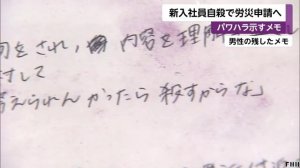 新入社員自殺で労災申請へ
パワハラ示すメモ
男性の残したメモ
をされ、内容を理解
対して
えられんかったら殺すからな」
FNN